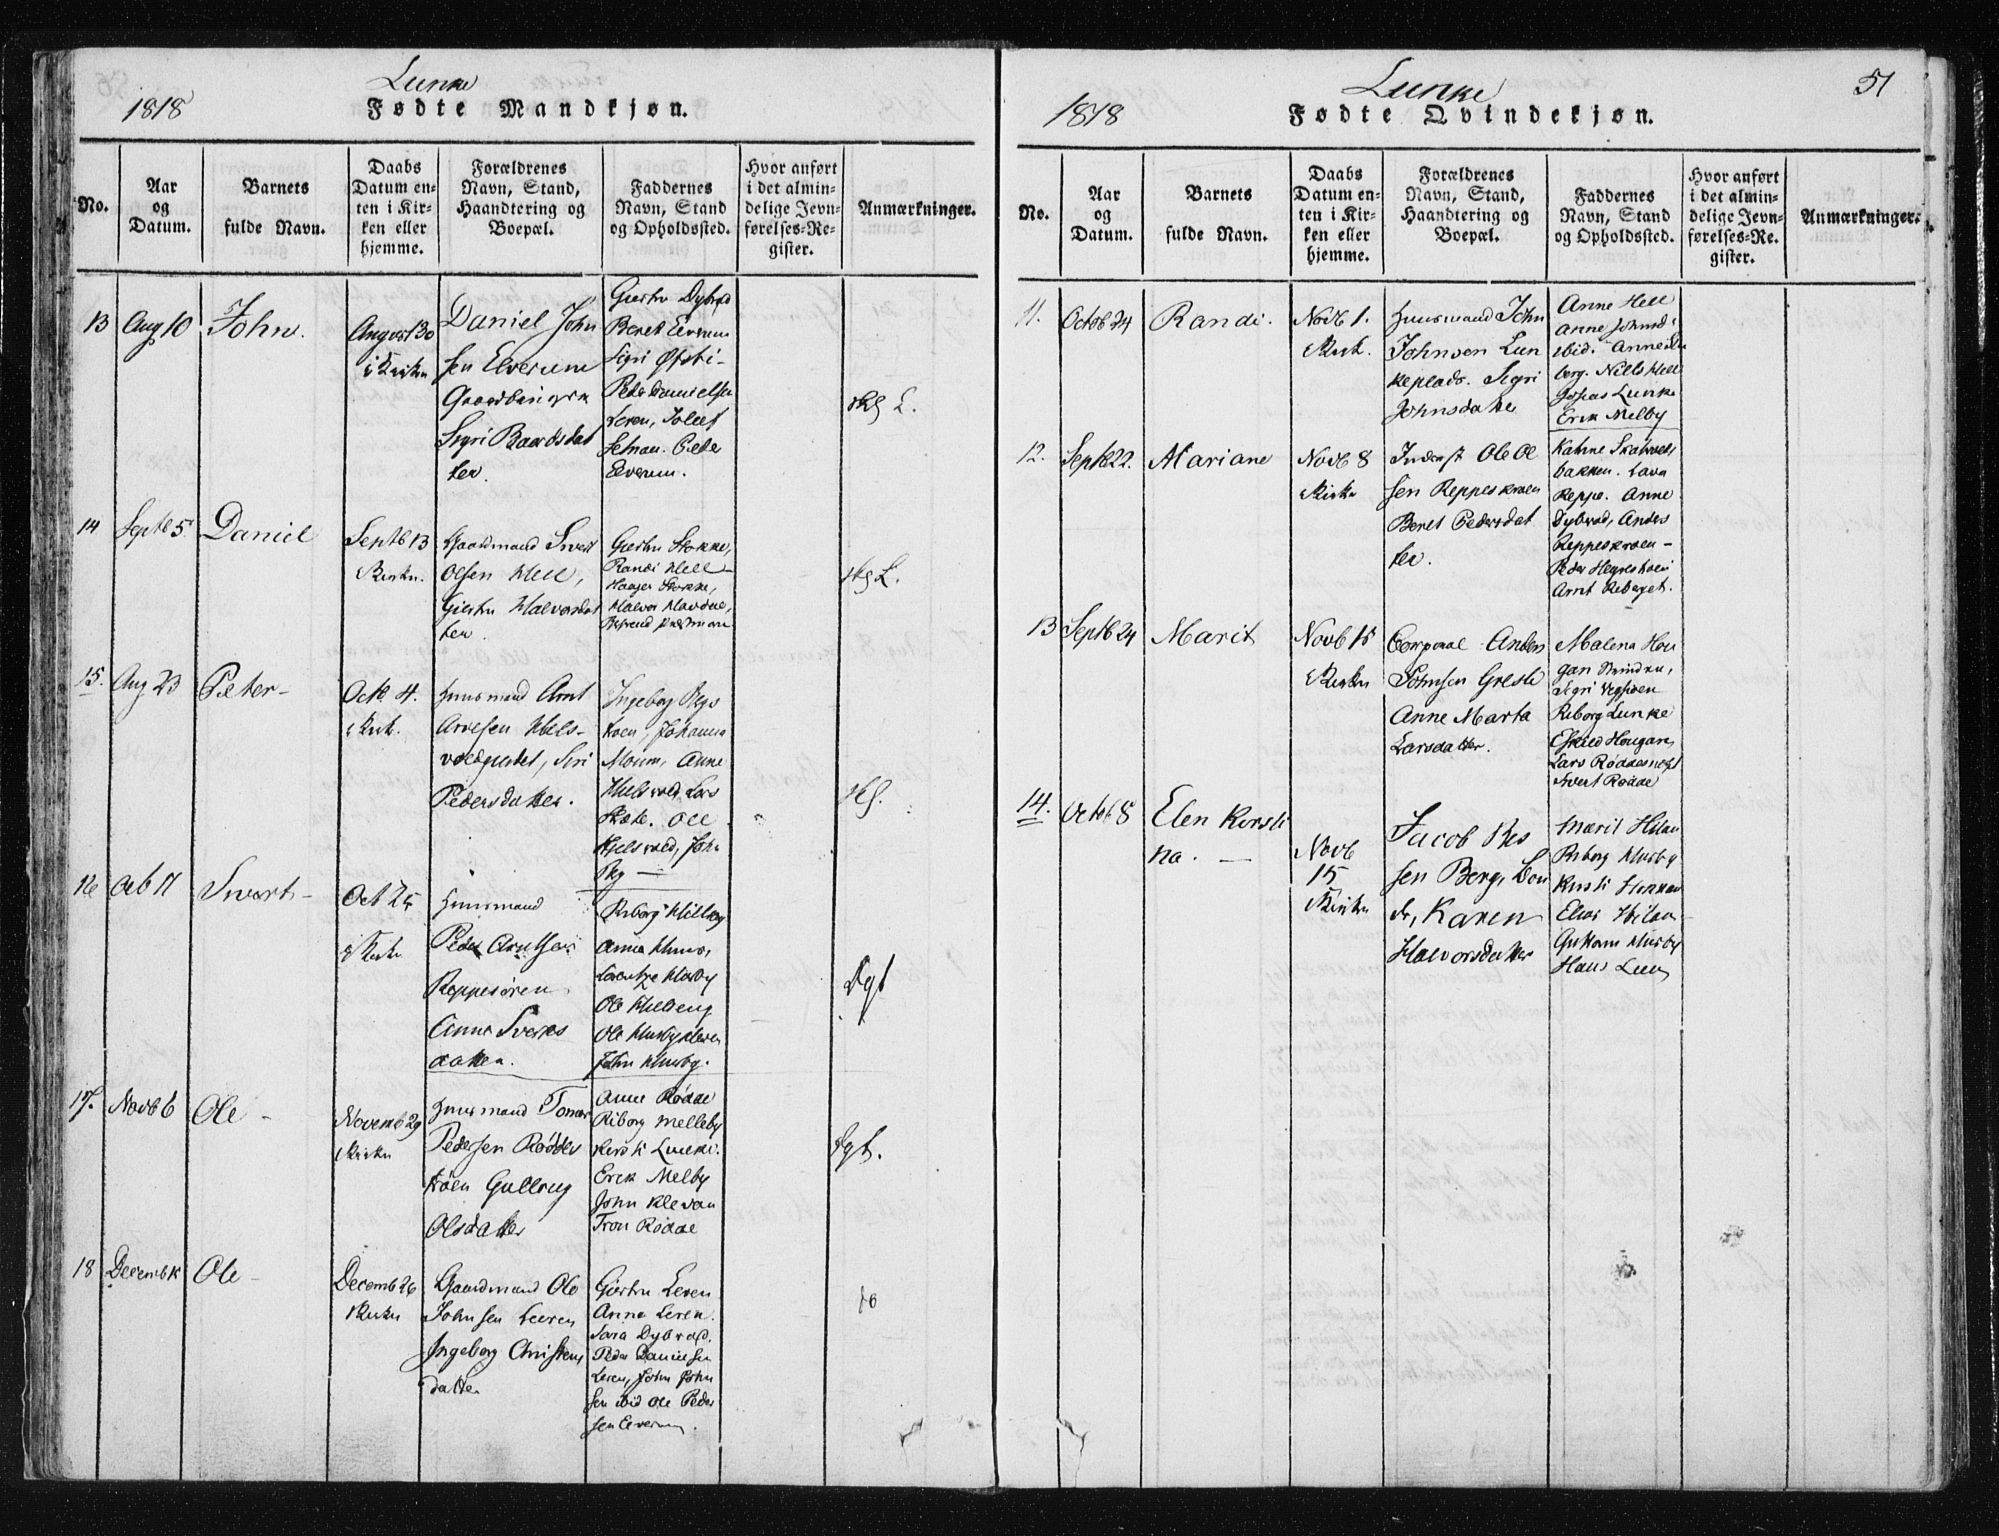 1818
Lunke
Fødte Mandkjøn.
No.
Aar
og
Datum.
Barnets
fulde Navn.
Daabs
Datum en-
ten i Kir-
ken eller
hjemme.
Forældrenes
Navn, Stand,
Haandtering og
Boepæl.
Faddernes
Navn, Stand
og Opholdssted.
Hvor anført
i det almin-
delige Jevn-
førelses-Re-
gister.
Anmærkninger.
13
Aug 10
John.
August 30
i Kirken
Daniel John
sen Elverum
Gaardbruger
Sigri Baardsdat
ter.
Giertru Dybvad
Beret Elverum
Sigri Øfsti-
Peder Danielsen
Leren,
Selnau. Peder
Elverum.
14
Septb 5
Daniel
Septb 13
Kirken.
Gaardmand Sivert
Olsen Hell,
Giertru Halvorsdat
ter.
Giertru Stokke,
Randi Hell
Stokke,
Halvor
15.
Aug 23
Peter-
Octb 4.
i Kirk.
Huusmand Arnt
Arntsen Hels-
voldgardet, Siri
Pedersdatter.
Ingeborg
Johanna
Moum, Anne
Hielsvold, Lars
Ole
Hielsvold, John
16
Octb 17
Sivert-
Oct 25
i Kirken
Huusmand
Peder Arntsen
Reppesøren
Anne Siverts
datter.
Riborg Hilberg
Anna Huus,
Lorentze Husby
Ole
Ole Husbykleven
John Husby.
Dgt
17.
Novb 6
Ole -
Novemb 29
i Kirken
Huusmand Tomas
Pedersen Rødder
kroen Gullrug
Olsdatter
Anne Rødde
Riborg Melleby
Kersti Lunke.
Erik Melby
John Klevan
Tron Rødde
Dgt.
18
Decemb
Ole -
Decemb 26
i Kirken
Gaardmand Ole
Johnsen Leeren
Ingeborg Christens
datter
Giertru Leren
Anne Leren.
Sara Dybvad.
Peder Danielsen
Leren, John John
sen ibid Ole Peder
sen Elverum.
1818
Lunke
51
Fødte Qvindekjøn.
No.
Aar
og
Datum.
Barnets
fulde Navn.
Daabs
Datum en-
ten i Kir-
ken eller
hjemme.
Forældrenes
Navn, Stand,
Haandtering og
Boepæl.
Faddernes
Navn, Stand
og Opholdssted.
Hvor anført
i det almin-
delige Jevn-
førelses-Re-
gister.
Anmærkninger.
11.
Octob 24
Randi.
Novb 1.
Kirk.
Huusmand John
Johnsen Lun
keplads. Sigri
Johnsdatter
Anne Hell
Anne Johnsd:
ibid. Anne
berg. Nills Hell
Josias Lunke
Erik Melby
12.
Septb 22.
Mariane
Novb 8
i Kirken
Inderst Ole Ol
sen Reppeskroen
Beret Pedersdat
ter.
bakken. Lava
Reppe. Anne
Dybvad, Anders
Reppeskroen-
Peder
Arnt Reberget.
13
Septb 24
Marit
Novb 15
i Kirken
Corporal Anders
Johnsen Gresli
Anne Marta
Larsdatter.
Malena Hou
gan
Sigri
Riborg Lunke
Eskild Hougan,
Lars
Sivert Rødde
14.
Octob 8
Elen Kersti
na. -
Novb
15
i Kirken
Jacob
sen Berg, Bon
de, Karen
Halvorsdatter
Marit
Riborg Husby
Kersti
Elias
Husby
Hans